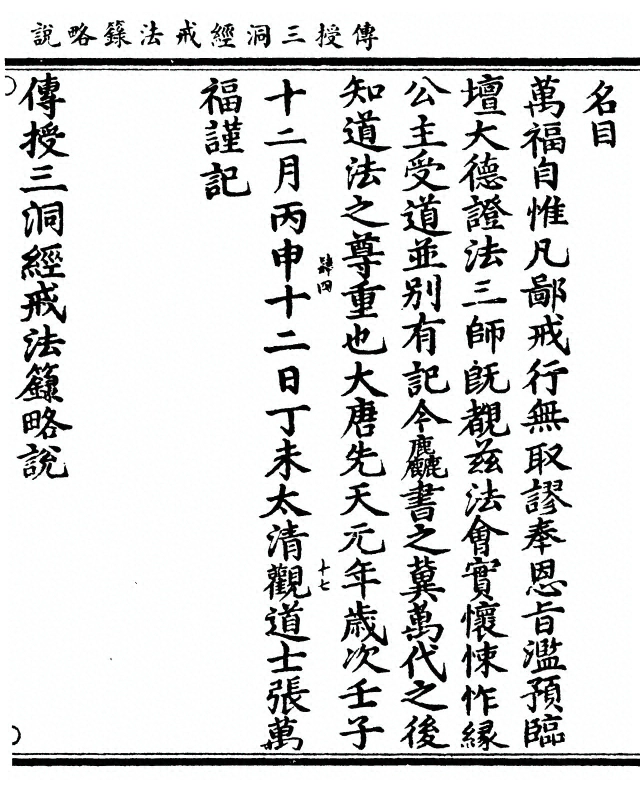 說略籙法戒經洞三授傳
名目
萬福自惟凡鄙戒行無取謬奉恩旨濫預臨
壇大德證法三師既覩茲法會實懷悚怍緣
公主受道並別有記今麤書之冀萬代之後
知道法之尊重也大唐先天元年歲次壬子
肆四
十七
十二月丙申十二日丁未太清觀道士張萬
福謹記
傳授三洞經戒法籙略說